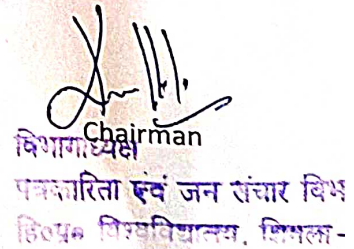 Chairman
विभागाध्यक्ष
पत्रकारिता एवं जन संचार विभ
हि०प्र० विश्वविद्यालय, शिमला-